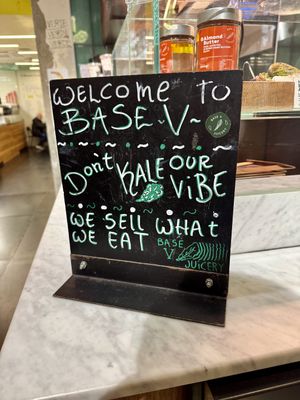 WELCOME TO
BASE~V
DON't KALE OUR
VIBE
WE SELL WHAT
WE EAT
BASE
V
JUICERY
Almond
Butter